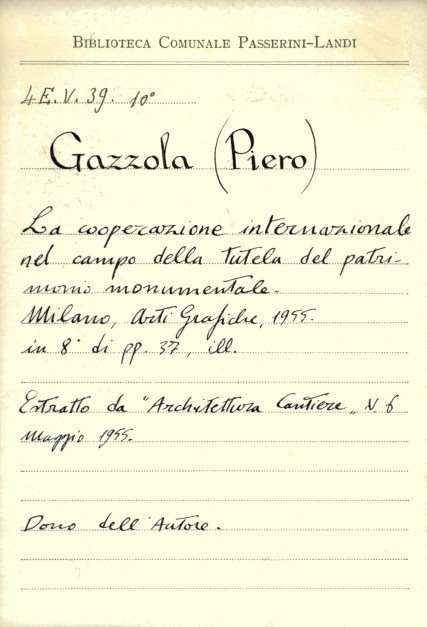 BIBLIOTECA COMUNALE PASSERINI-LANDI
4E.V.39. 10°
Gazzola (Piero)
La cooperazione internazionale
nel campo della tutela del patri-
monio monumentale.
Milano, Arti Grafiche, 1955.
in 8° di pp. 37, ill.
Estratto da "Architettura Cantiere„ N. 6
Maggio 1955.
Dono dell'Autore.